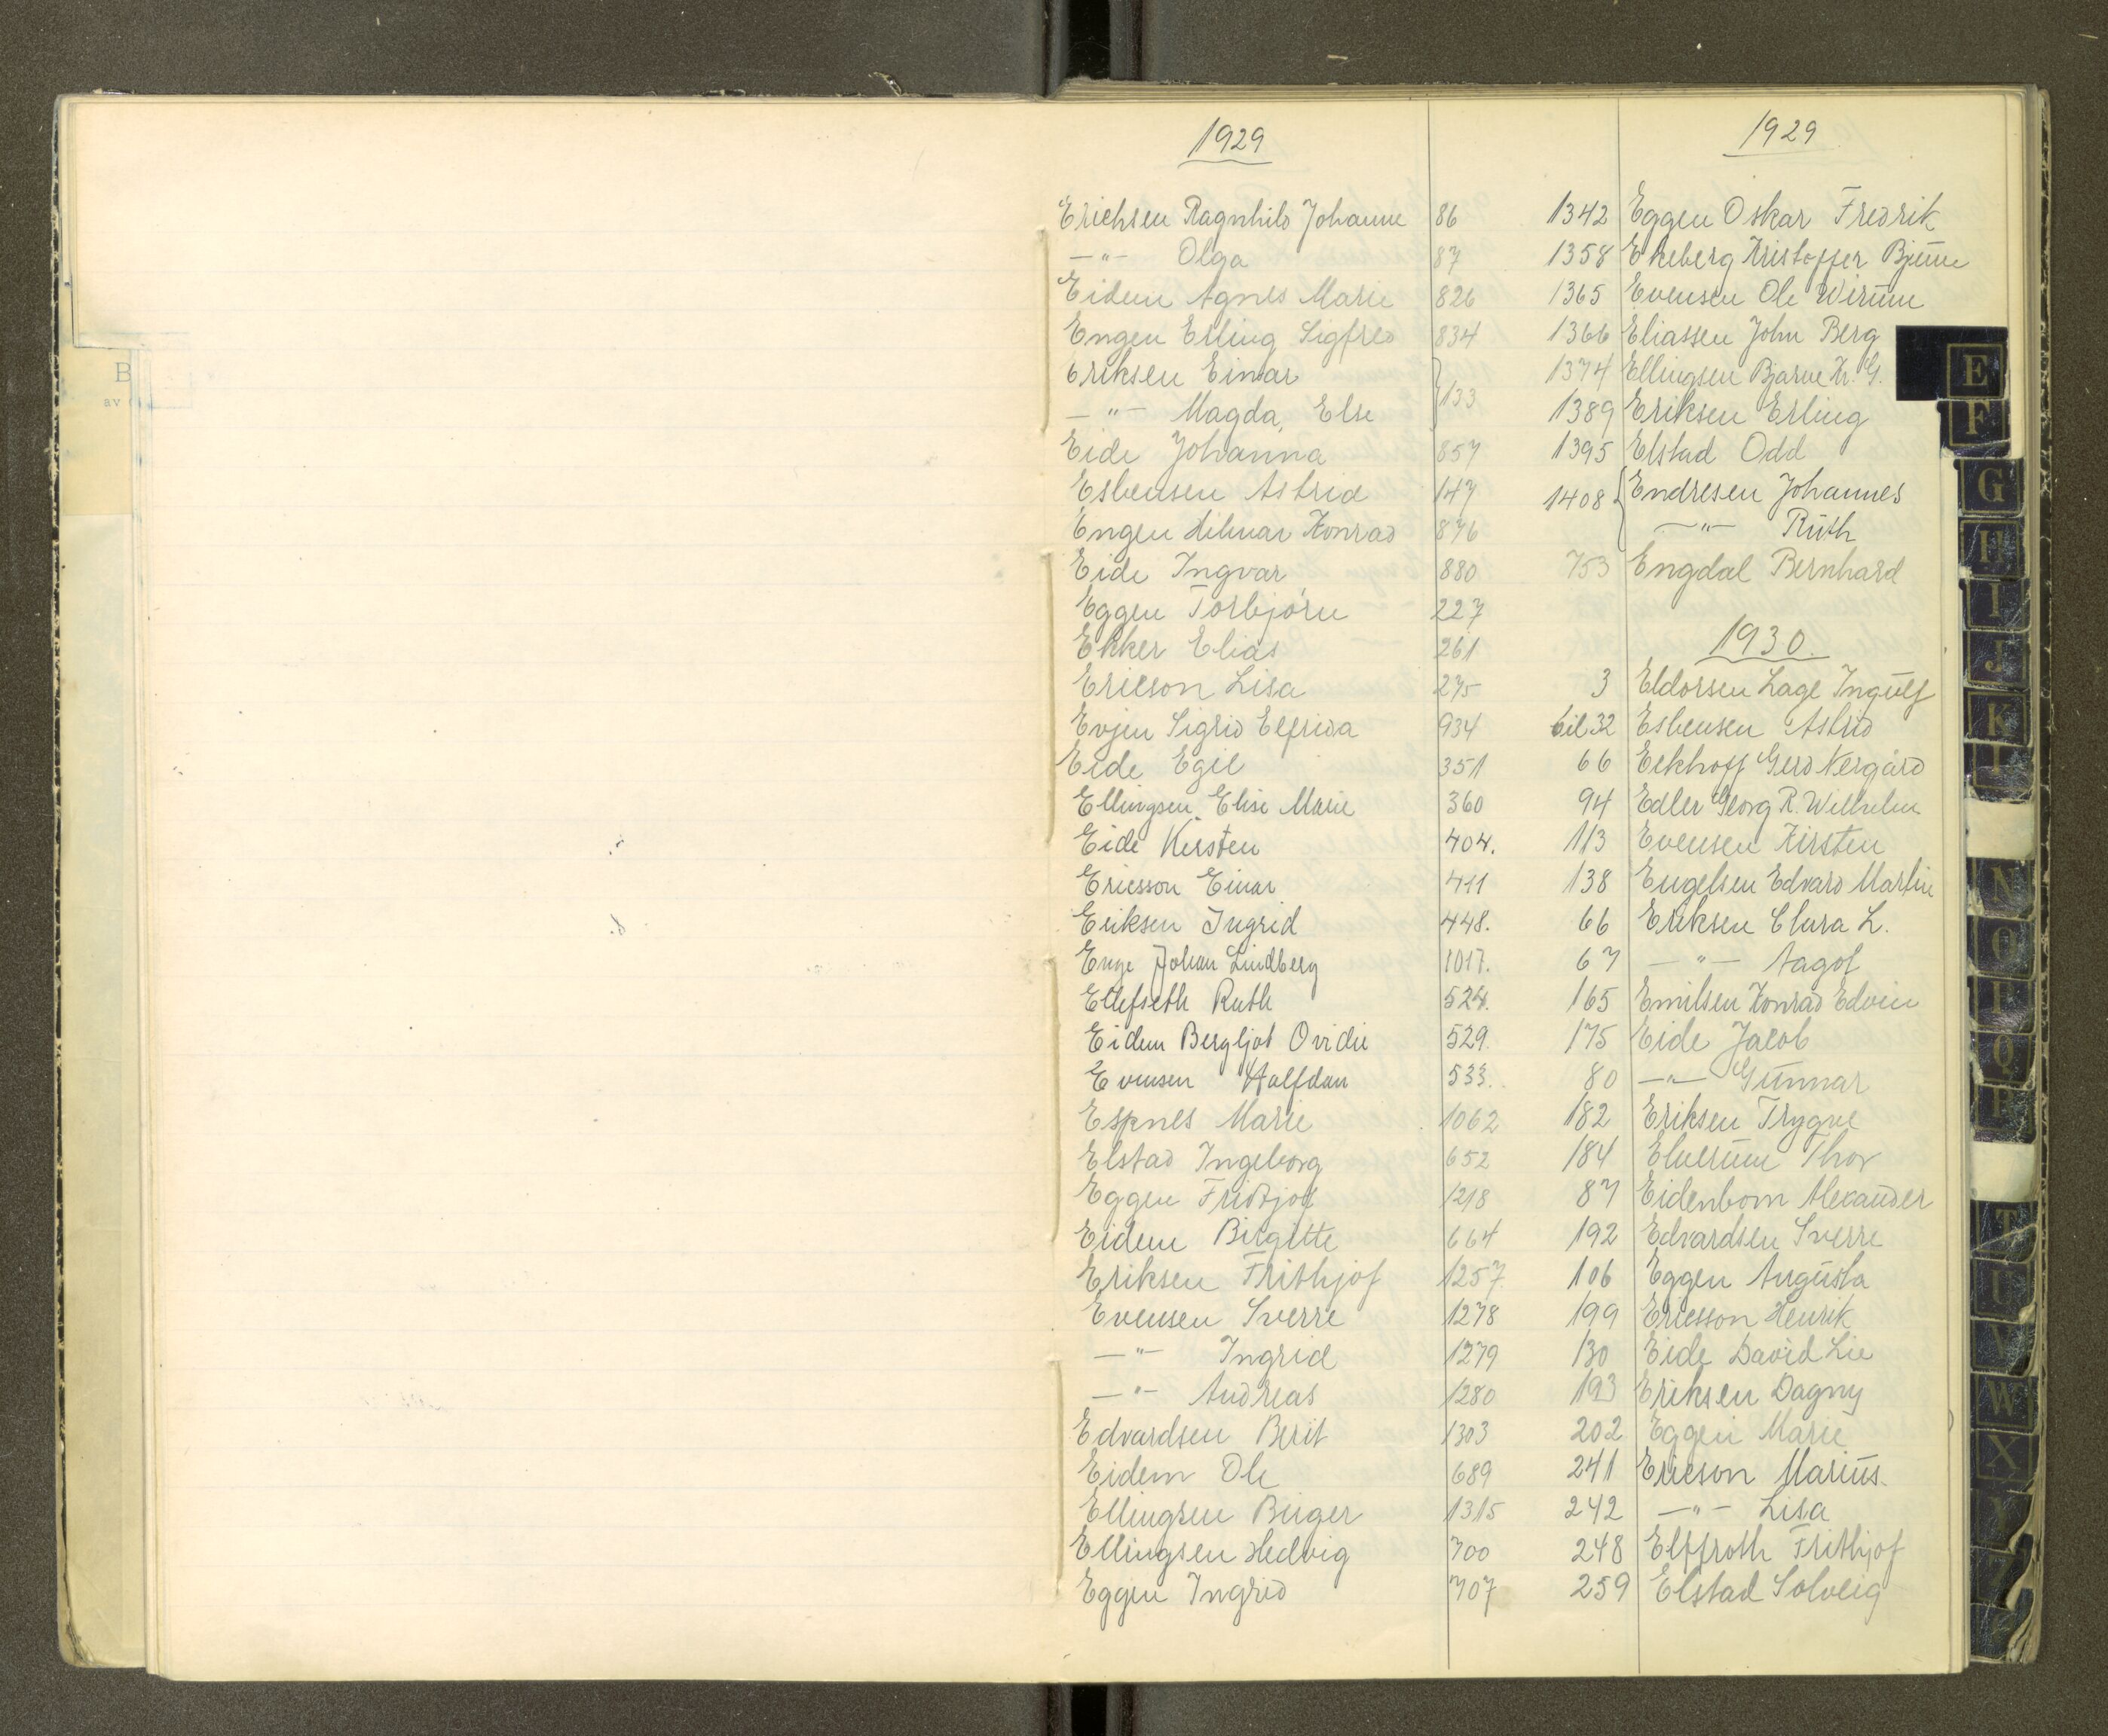 1929
Erichsen Ragnhild Johanne 86
—"— Olga 87
Eidem Agnes Marie 826
Engen Erling Sigfred 834
Eriksen Einar
—"— Magda, Else 133
Eide Johanna 857
Esbensen Astrid 147
Engen Hilmar Konrad 876
Eide Ingvar 880
Eggen Torbjörn 227
Ekker Elias 261
Ericson Lisa 275
Evjen Sigrid Elfrida 934
Eide Egil 351
Ellingsen Elise Marie 360
Eide Kirsten 404.
Ericsson Einar 411
Eriksen Ingrid 448.
Enge Johan Lindberg 1017.
Etlefseth Ruth 524.
Eidem Bergljot Ovidie 529.
Evensen Halfdan 533.
Espnes Marie 1062
Elstad Ingeborg 652
Eggen Fridtjof 1218
Eidem Birgitte 664
Eriksen Frithjof 1257
Evensen Sverre 1278
—"— Ingrid 1279
—"— Andreas 1280
Edvardsen Berit 1303
Eidem Ole 689
Ellingsen Birger 1315
Ellingsen Hedvig 700
Eggen Ingrid 707
1929
1342 Eggen Oskar Fredrik
1358 Ekeberg Kristoffer Bjerme
1365 Evensen Ole Wirum
1366 Eliassen John Berg
1374 Ellingsen Bjarne Kr. G.
1389 Eriksen Erling
1395 Elstad Odd
1408 Endresen Johannes
—"— Ruth
753 Engdal Bernhard
1930.
3 Eldorsen Lage Ingulf
bil 32 Esbensen Astrid
66 Eckhoff Gerd Nergård
94 Edler Georg R. Wilhelm
113 Evensen Kirsten
138 Engelsen Edvard Martin
66 Eriksen Clara L.
67 —"— Aagot
165 Emilsen Konrad Edvin
175 Eide Jacob
80 —"— Gunnar
182 Eriksen Trygve
184 Elverum Thor
87 Eidenbom Alexander
192 Edvardsen Sverre
106 Eggen Augusta
199 Ericsson Henrik
130 Eide David Lie
193 Eriksen Dagny
202 Eggen Marie
241 Ericson Marius.
242 —"— Lisa
248 Elffroth Frithjof
259 Elstad Solveig
B
av
E
F
G
H
I
J
K
L
N
O
P
Q
R
T
U
V
W
X
Y
Z